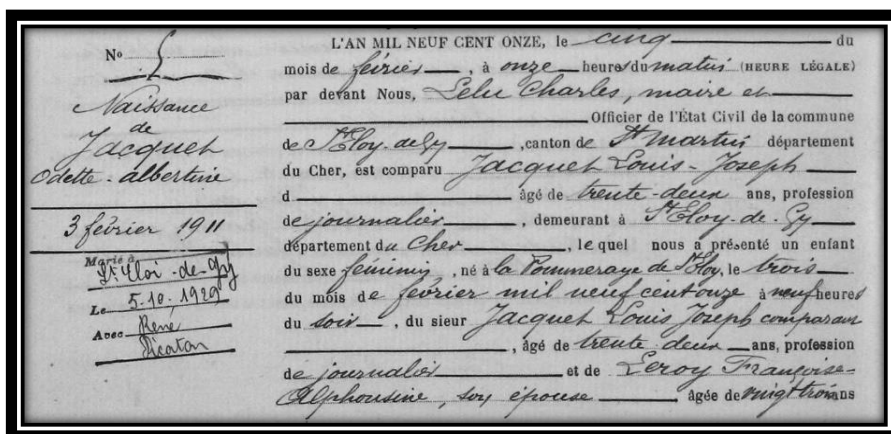 N° 5
Naissance
de
Jacquet
Odette-Albertine
3 février 1911
Marié à
St. Eloi-de-Gy
Le 5-10-1929
Avec René
Picaton
L'AN MIL NEUF CENT ONZE, le cinq du
mois de février, à onze heures du matin (HEURE LÉGALE)
par devant Nous, Lelu Charles, maire et
Officier de l'État Civil de la commune
de St Eloy-de-Gy, canton de St Martin département
du Cher, est comparu Jacquet Louis-Joseph
d âgé de trente-deux ans, profession
de journalier, demeurant à St Eloy-de-Gy
département du Cher, lequel nous a présenté un enfant
du sexe féminin, né à la Pommeraye de St Eloy, le trois
du mois de février mil neuf cent onze à neuf heures
du soir, du sieur Jacquet Louis Joseph comparant
, âgé de trente-deux ans, profession
de journalier et de Leroy Françoise-
Alphonsine, son épouse âgée de vingt trois ans